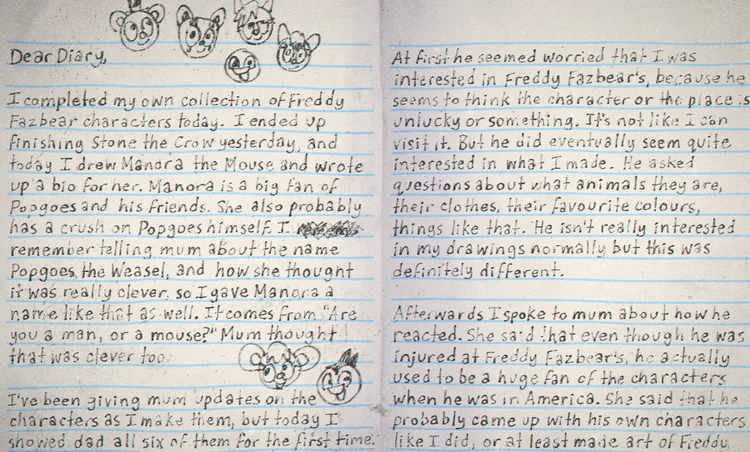 Dear Diary,
I completed my own collection of Freddy
Fazbear characters today. I ended up
finishing Stone the Crow yesterday, and
today I drew Manora the Mouse and wrote
up a bio for her. Manora is a big fan of
Popgoes and his friends. She also probably
has a crush on Popgoes himself. I
remember telling mum about the name
Popgoes the Weasel, and how she thought
it was really clever, so I gave Manora a
name like that as well. It comes from "Are
you a man, or a mouse?" Mum thought
that was clever too.
I've been giving mum updates on the
characters as I make them, but today I
showed dad all six of them for the first time.
At first he seemed worried that I was
interested in Freddy Fazbear's, because he
seems to think the character or the place is
unlucky or something. It's not like I can
visit it. But he did eventually seem quite
interested in what I made. He asked
questions about what animals they are,
their clothes, their favourite colours,
things like that. He isn't really interested
in my drawings normally but this was
definitely different.
Afterwards I spoke to mum about how he
reacted. She said that even though he was
injured at Freddy Fazbear's, he actually
used to be a huge fan of the characters
when he was in America. She said that he
probably came up with his own characters
like I did, or at least made art of Freddy